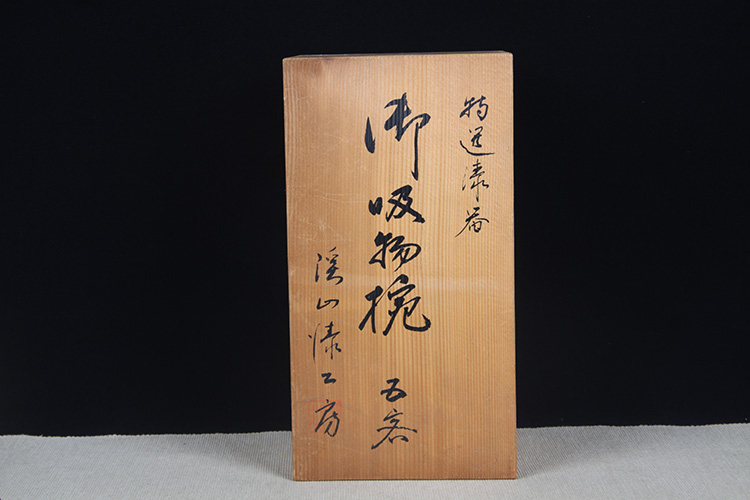 特選漆器
御吸物椀
五客
渓山漆工房